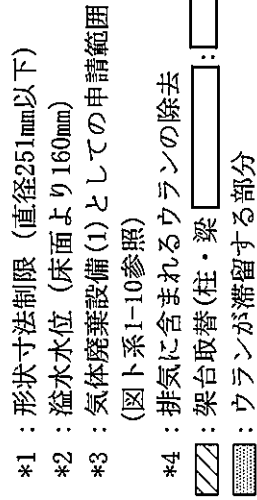 *1 : 形状寸法制限 (直径251mm以下)
*2 : 溢水水位 (床面より160mm)
*3 : 気体廃棄設備(1)としての申請範囲
(図ト系1-10参照)
*4 : 排気に含まれるウランの除去
: 架台取替(柱・梁
:
: ウランが滞留する部分